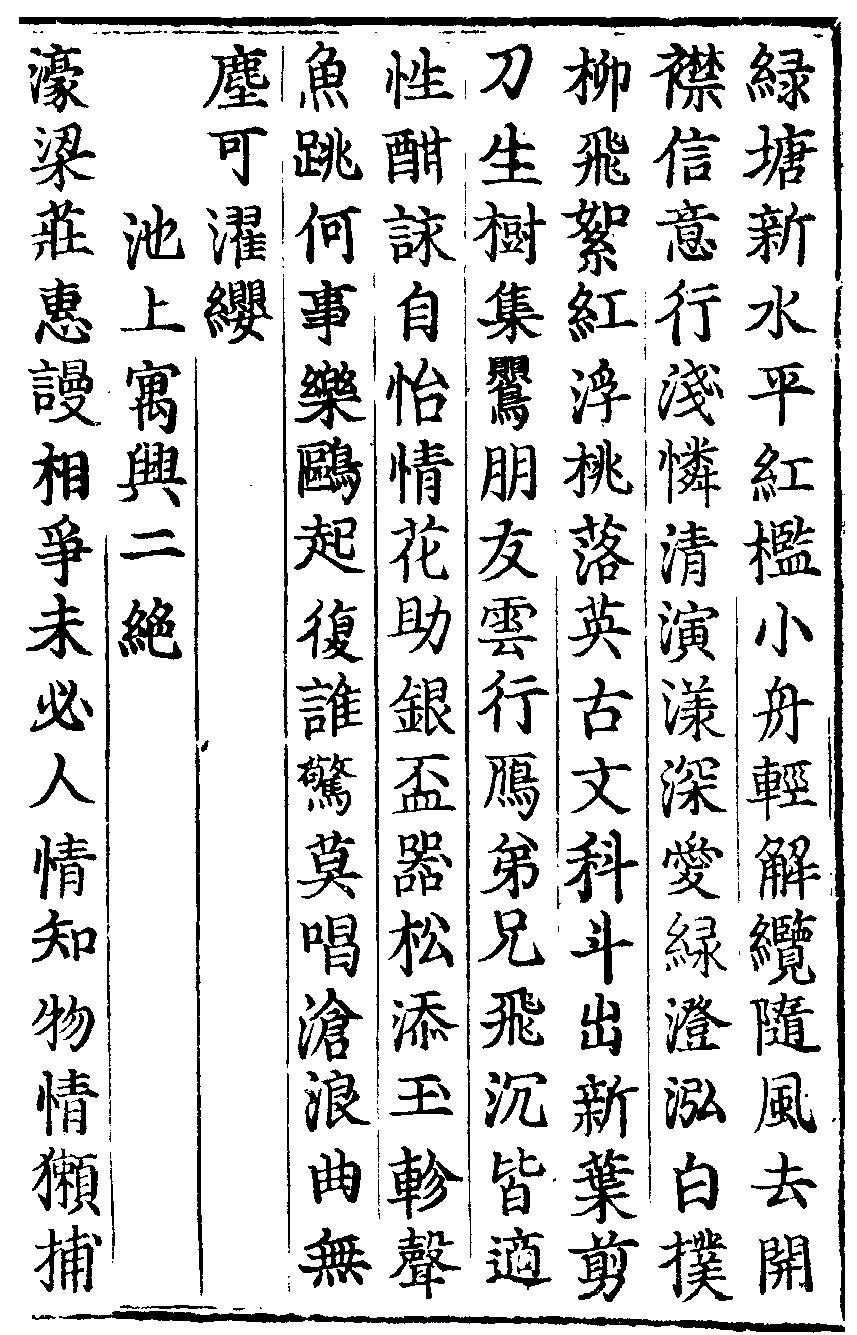 緑塘新水平紅檻小舟輕解纜隨風去開
襟信意行淺憐清演漾深愛緑澄泓白撲
柳飛絮紅浮桃落英古文科斗出新葉剪
刀生樹集鸎朋友雲行鴈弟兄飛沉皆適
性酣詠自怡情花助銀盃器松添玉軫聲
魚跳何事樂鷗起復誰驚莫唱滄浪曲無
塵可濯纓
池上寓興二絶
濠梁莊惠謾相爭未必人情知物情獺捕